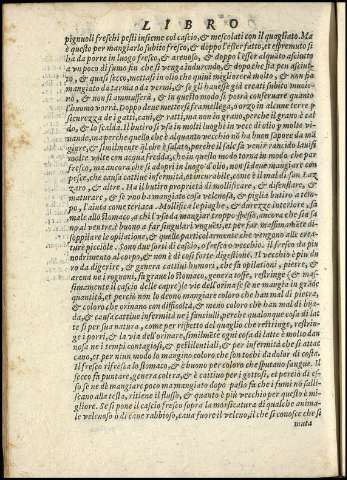 LIBRO
pignuoli freschi pesti insieme col cascio, & mescolati con il quagliato. Ma
è questo per mangiarlo subito fresco, & doppo l'esser fatto, et espremuto si
ha da porre in luogo fresco, & arenoso, & doppo l'esser alquato asciutto
a un poco di fumo fin che si venga indurendo, & dopo che sia ben asciut
to, & quasi secco, mettasi in olio che quiui migliorerà molto, & non sia
mangiato da tarma o da vermi, & se gli hauesse già creati subito muoio
no, & non si ammufferà, & in questo modo si potrà conseruare quanto
l'huomo vorrà. Doppo deue mettersi fra miglio, o orzo in alcune terre p
sicurezza de i gatti, cani, & ratti, ma non in grano, perche il grano è cal
do, & lo scalda. Il butiro s'usa in molti luoghi in vece di olio per molte vi
uande, ma per quello che è alquanto vecchio nõ ha buon sapore da mã
giare, & similmente quello che è salato, perche il sale fa venir rancido lauisi
molte volte con acqua fredda, che in questo modo torna in modo che par
fresco, ma ancora che si adopri in luogo d'olio, non si deue mangiare con
pesce, che causa cattiue infermità, et incurabili, come è il mal di san Laz
zaro, & altre. Ha il butiro proprietà di mollificare, & disensiare, &
maturare, & se vno ha mangiato cosa velenosa, & piglia butiro a tem-
po, l'aiuta come teriaca. Mollifica le piaghe, & durezze interiori, fa
male allo stomaco, a chi l'usa da mangiar troppo spesso, ancora che sia sa
no al ventre, è buono a far singulari vnguẽti, et per far massimamẽte di-
soppilare le opilationi, & quelle particolarmente che vengono alle crea-
ture picciole. Sono due sorti di cascio, o fresco o vecchio. il fresco da piu
nodrimento al corpo, & non è di così forte digestione. Il vecchio è piu du
ro da digerire, & genera cattiui humori, che fa opilationi, pietre, &
arena ne i rognoni, fa graue lo stomaco, genera tosse, restringe (& mas-
simamente il cascio delle capre) le vie dell'orina se se ne mangia in grãde
quantità, et perciò non lo deono mangiare coloro che han mal di pietra,
& coloro che orinano con difficoltà, & meno coloro che hãn mal di hijia
da, & causa cattiue infermità ne i fanciulli, perche qualunque cosa di lat
te fa per sua natura, come per rispetto del quaglio che restringe, restrin-
ge i porri, & la via dell'orina, similmẽte ogni cosa di latte è molto dan
nosa ne i tempi contagiosi, & pestilentiali, & per infermità che si attac
cano, et per niun modo lo mangino coloro che son tocchi da dolor di costa.
Il fresco rifresca lo stomaco, & è buono per coloro che sputano sangue. Il
secco fa puntare, genera colera, & è cattiuo per i gottosi, et perciò di es-
so se ne dè mangiare poco ma mangiato dopo pasto fa che i fumi nõ salli-
scano alla testa, ritiene il flusso, & quanto è più vecchio per questo è mi-
gliore. Se si pone il cascio fresco sopra la morsicatura di qualche anima-
le velenoso ò di cane rabbioso, caua fuore il veleno, il che si conosce che si
muta